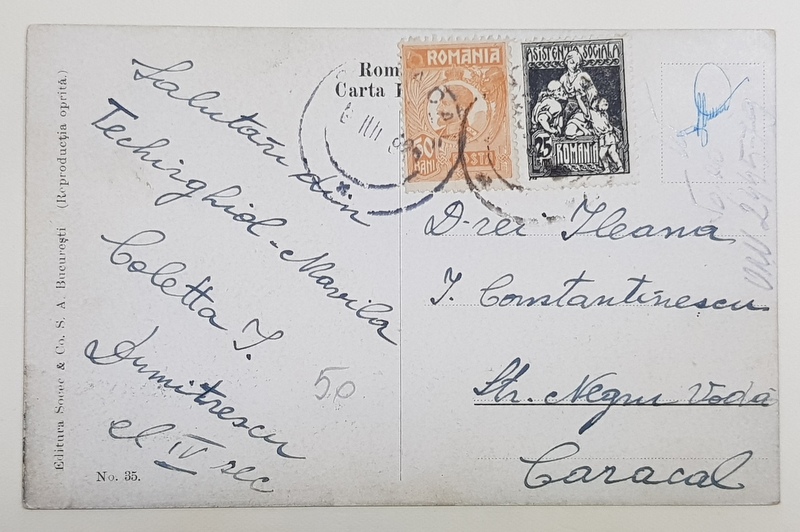 Editura Socec & Co. S. A. București (Reproducția oprită.)
No. 35.
Rom
Carta P
ROMANIA
50
BANI
POSTA
ASISTENȚA SOCIALA
25
ROMANIA
Salutări din
Techirghiol-Movila
Coletta I.
Dumitrescu
cl IV sec
50
D-rei Ileana
I. Constantinescu
Str. Negru Vodă
Caracal